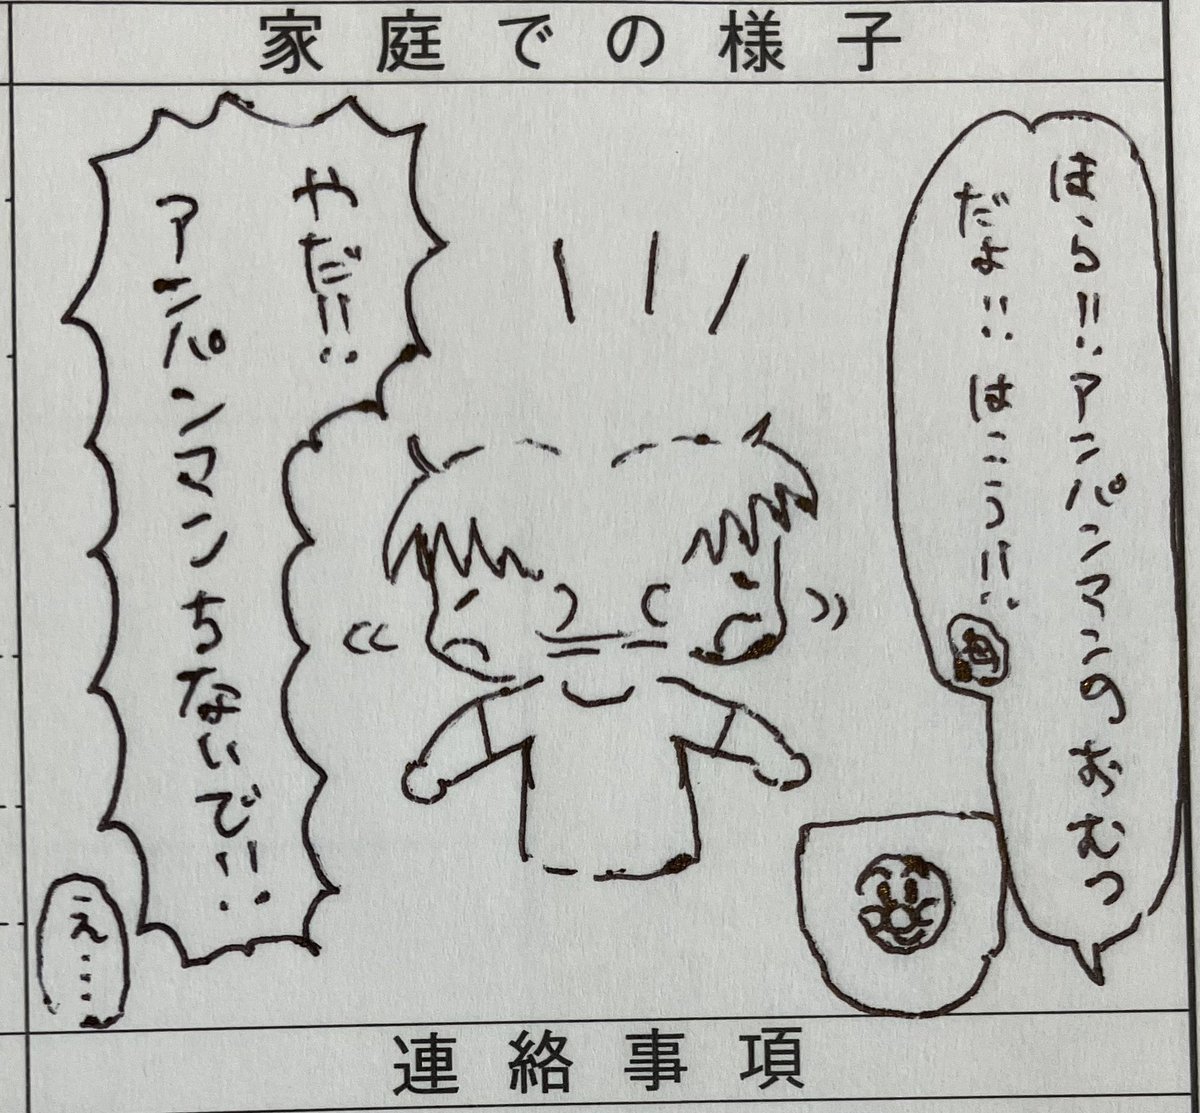 家庭での様子
ほら!!アンパンマンのおむつ
だよ!!はこう!!
母
やだ!!
アンパンマンちないで!!
え…
連絡事項